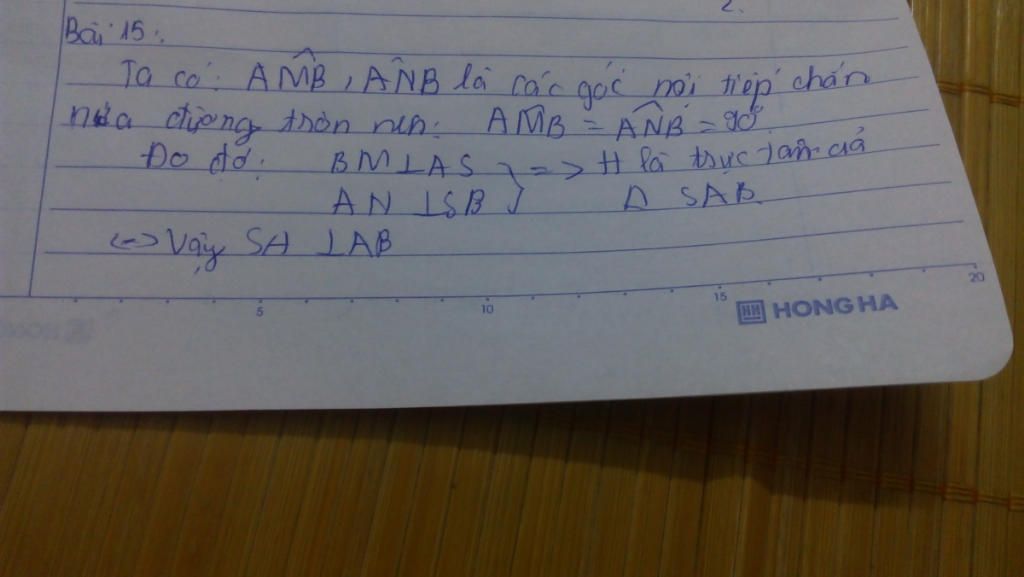 2.
Bài 15:
Ta có: AM̂B, AN̂B là các góc nội tiếp chắn
nửa đường tròn nên: AM̂B = AN̂B = 90°
Do đó: BM⊥AS } => H là trực tâm của
AN ⊥SB } Δ SAB
<=> Vậy SH ⊥AB
5 10 15 20
HONG HA